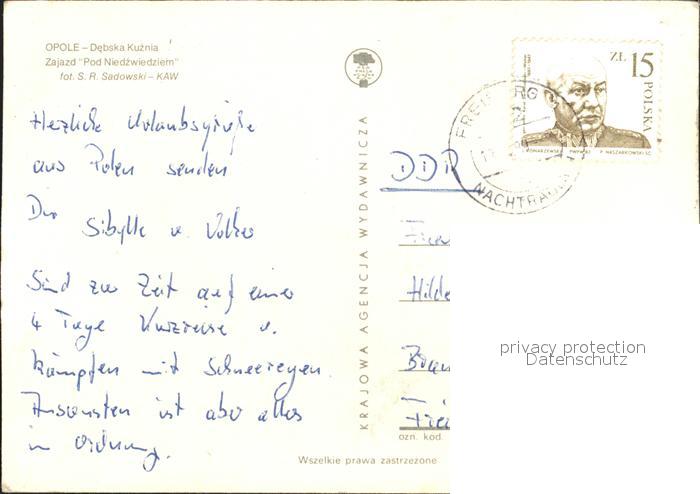 OPOLE – Dębska Kuźnia
Zajazd "Pod Niedźwiedziem"
fot. S. R. Sadowski – KAW
Herzliche Urlaubsgrüße
aus Polen senden
Dir Sibylle u. Volker
Sind zur Zeit auf einer
4 Tage Kurzreise u.
kämpfen mit Schneeregen.
Ansonsten ist aber alles
in Ordnung.
KRAJOWA AGENCJA WYDAWNICZA
ZŁ 15
POLSKA
PWPW 87 P. NASZARKOWSKI SC.
NACHTRÄGL
DDR
Frau
Hilde
ozn. kod.
Wszelkie prawa zastrzeżone
privacy protection
Datenschutz